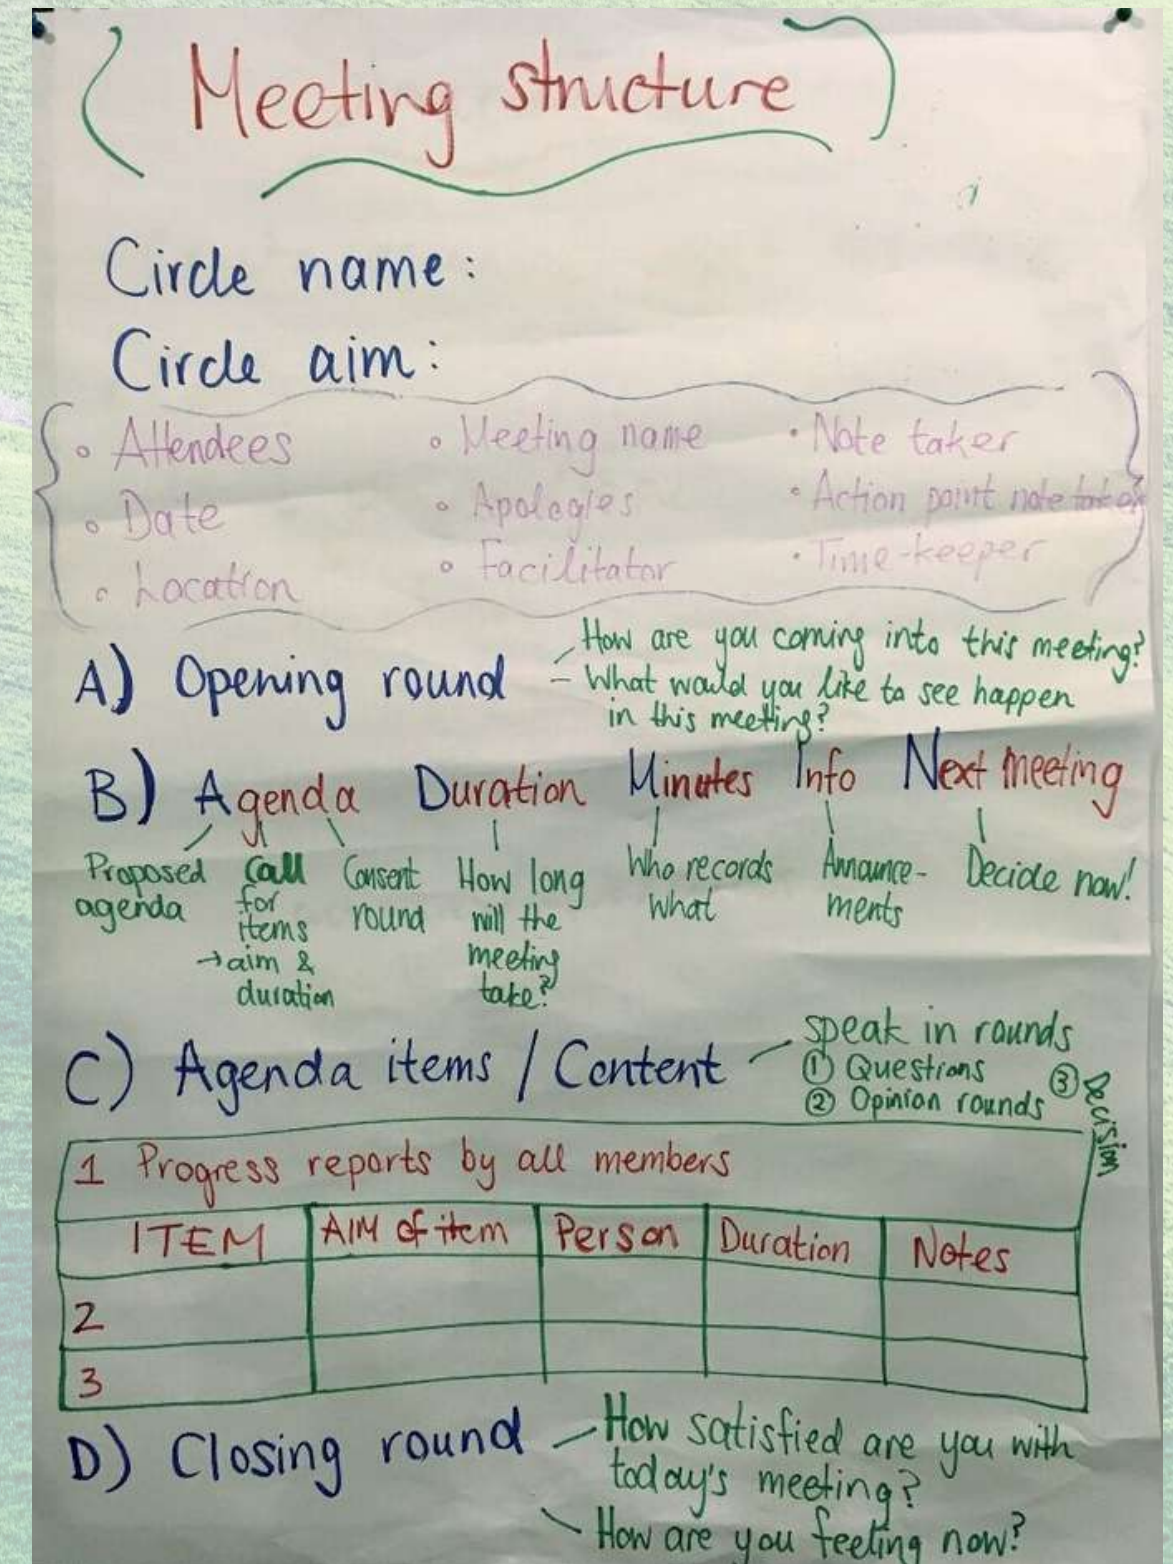 Meeting structure
Circle name:
Circle aim:
• Attendees
• Meeting name
• Note taker
• Date
• Apologies
• Action point note taker
• Location
• Facilitator
• Time-keeper
A) Opening round
- How are you coming into this meeting?
- What would you like to see happen
in this meeting?
B) Agenda Duration Minutes Info Next meeting
Proposed
agenda
Call
for
items
→ aim &
duration
Consent
round
How long
will the
meeting
take?
Who records
what
Announce-
ments
Decide now!
C) Agenda items / Content
speak in rounds
① Questions
② Opinion rounds
③ Decision
1 Progress reports by all members
ITEM AIM of item Person Duration Notes
2
3
D) Closing round
How satisfied are you with
today's meeting?
How are you feeling now?